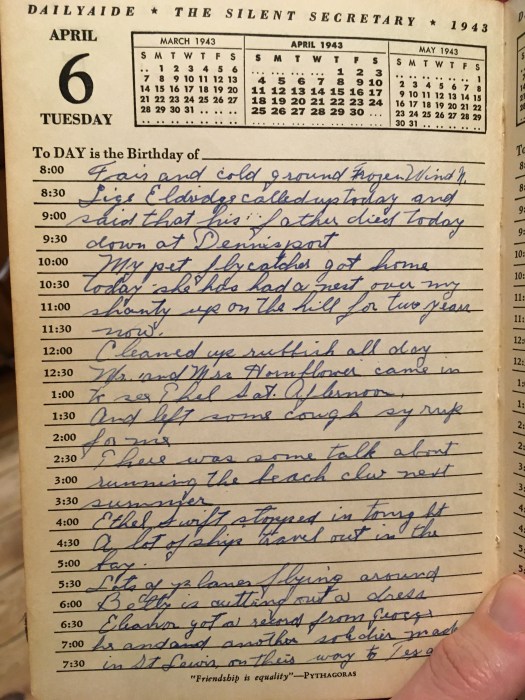 DAILYAIDE * THE SILENT SECRETARY * 1943
APRIL
6
TUESDAY
MARCH 1943
S M T W T F S
.. 1 2 3 4 5 6
7 8 9 10 11 12 13
14 15 16 17 18 19 20
21 22 23 24 25 26 27
28 29 30 31 .. .. ..
APRIL 1943
S M T W T F S
.. .. .. .. 1 2 3
4 5 6 7 8 9 10
11 12 13 14 15 16 17
18 19 20 21 22 23 24
25 26 27 28 29 30 ..
MAY 1943
S M T W T F S
.. .. .. .. .. .. 1
2 3 4 5 6 7 8
9 10 11 12 13 14 15
16 17 18 19 20 21 22
23 24 25 26 27 28 29
30 31 .. .. .. .. ..
To DAY is the Birthday of
8:00 Fair and cold ground Frozen Wind N.
8:30 Lige Eldridge called up today and
9:00 said that his father died today
9:30 down at Dennisport
10:00 My pet flycatcher got home
10:30 today she has had a nest over my
11:00 shanty up on the hill for two years
11:30 now.
12:00 Cleaned up rubbish all day
12:30 Mr. and Mrs Hornflower came in
1:00 to see Ethel Sat. Afternoon.
1:30 And left some cough syrup
2:00 for me
2:30 There was some talk about
3:00 running the beach next
3:30 summer
4:00 Ethel Swift stopped in tonight
4:30 A lot of ships travel out in the
5:00 bay.
5:30 Lots of planes flying around
6:00 Betty is cutting out a dress
6:30 Eleanor got a record from George
7:00 he and and another soldier made
7:30 in St Lewis on their way to
"Friendship is equality"—PYTHAGORAS